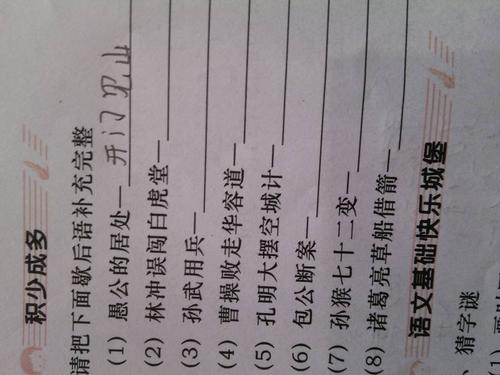 积少成多
请把下面歇后语补充完整
(1) 愚公的居处—开门见山
(2) 林冲误闯白虎堂—
(3) 孙武用兵—
(4) 曹操败走华容道—
(5) 孔明大摆空城计—
(6) 包公断案—
(7) 孙猴七十二变—
(8) 诸葛亮草船借箭—
语文基础快乐城堡
、猜字谜